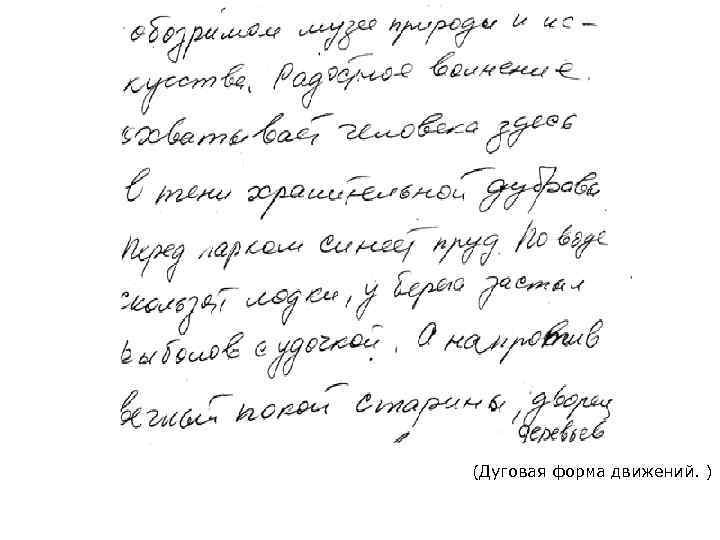 обозримом музее природы и ис-
кусства. Радостное волнение
охватывает человека здесь
в тени хранительной дубравы
Перед парком синеет пруд. По воде
скользят лодки, у берега застыл
рыболов с удочкой. А напротив
вечный покой старины, дворец
деревьев
(Дуговая форма движений. )